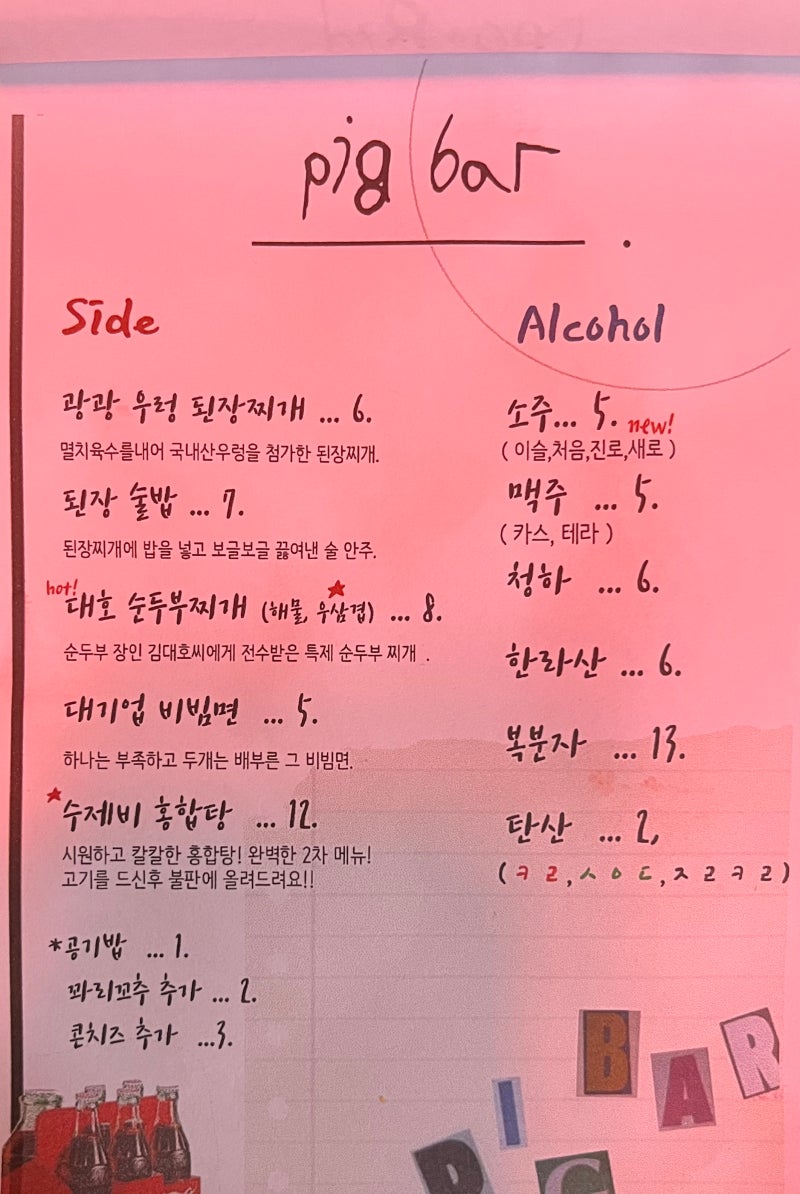 pig bar
.
Side
광광 우렁 된장찌개 ... 6.
멸치육수를내어 국내산우렁을 첨가한 된장찌개.
된장 술밥 ... 7.
된장찌개에 밥을 넣고 보글보글 끓여낸 술 안주.
hot!
대호 순두부찌개 (해물, 우삼겹) ... 8.
순두부 장인 김대호씨에게 전수받은 특제 순두부 찌개 .
대기업 비빔면 ... 5.
하나는 부족하고 두개는 배부른 그 비빔면.
수제비 홍합탕 ... 12.
시원하고 칼칼한 홍합탕! 완벽한 2차 메뉴!
고기를 드신후 불판에 올려드려요!!
*공기밥 ... 1.
꽈리꼬추 추가 ... 2.
콘치즈 추가 ...3.
Alcohol
소주... 5. new!
( 이슬,처음,진로,새로 )
맥주 ... 5.
( 카스, 테라 )
청하 ... 6.
한라산 ... 6.
복분자 ... 13.
탄산 ... 2,
( ㅋ ㄹ , ㅅ ㅇ ㄷ , ㅈ ㄹ ㅋ ㄹ )
BAR
PIG